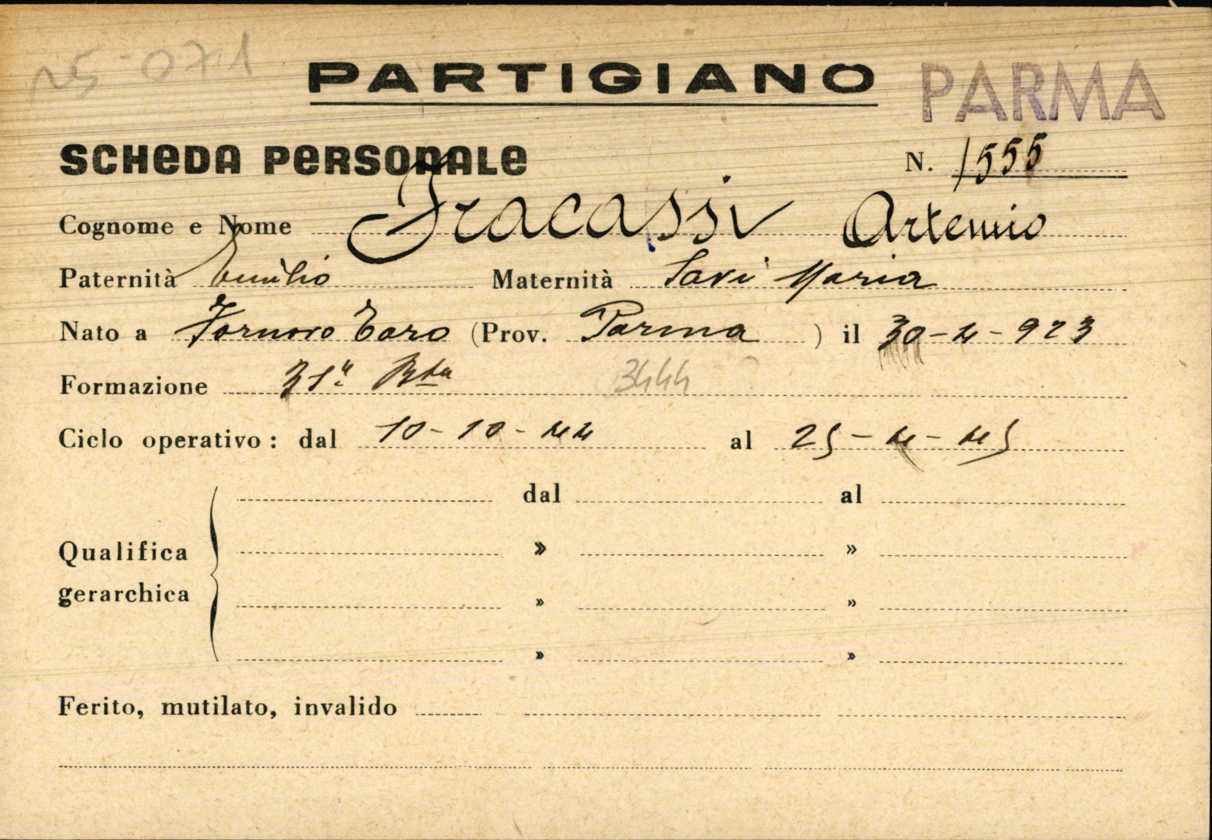 25-071
PARTIGIANO PARMA
SCHEDA PERSONALE N. 1555
Cognome e Nome Fracassi Artemio
Paternità Emilio Maternità Savi Maria
Nato a Fornovo Taro (Prov. Parma ) il 30-4-923
Formazione 31ª Bta 3444
Ciclo operativo : dal 10-10-44 al 25-4-45
dal al
Qualifica » »
gerarchica » »
» »
Ferito, mutilato, invalido